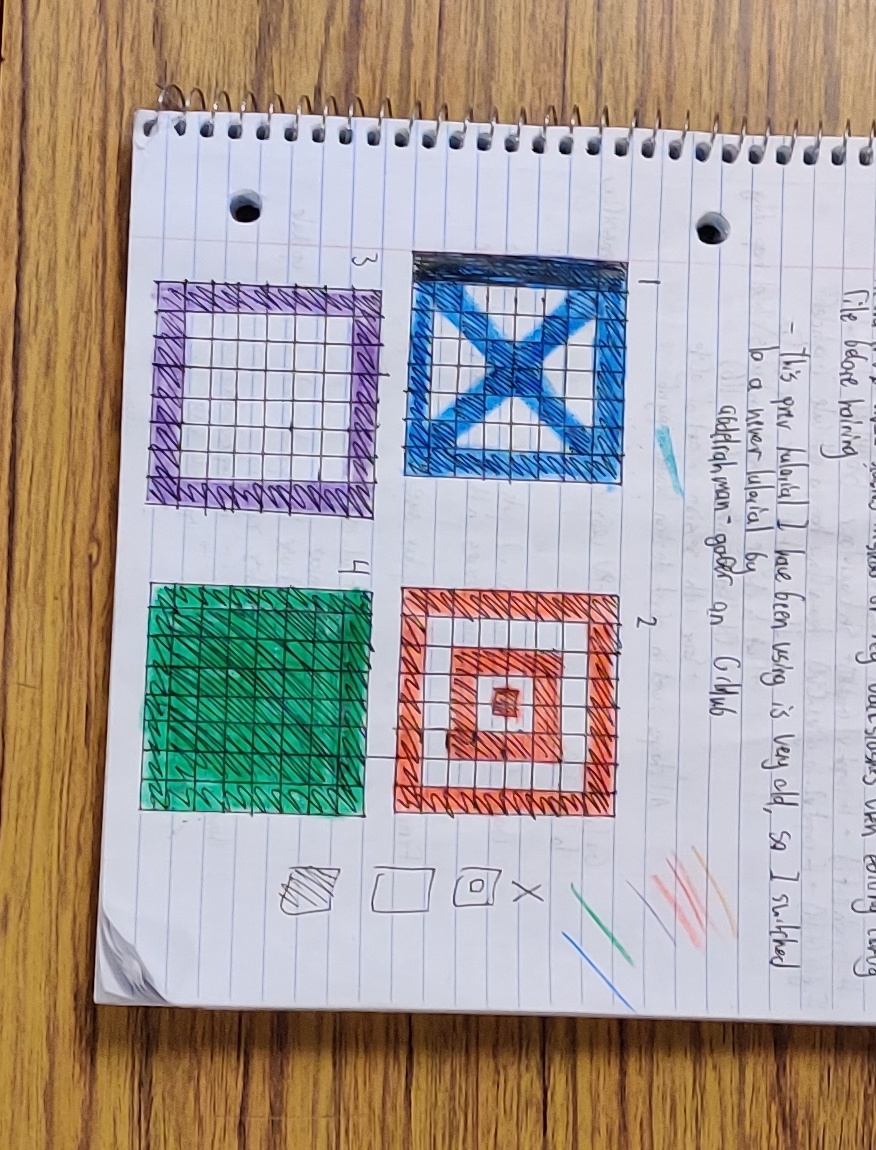 file before training
- This prev tutorial I have been using is very old, so I switched
to a newer tutorial by
abdelrahman-gaber on GitHub
1
2
3
4
X